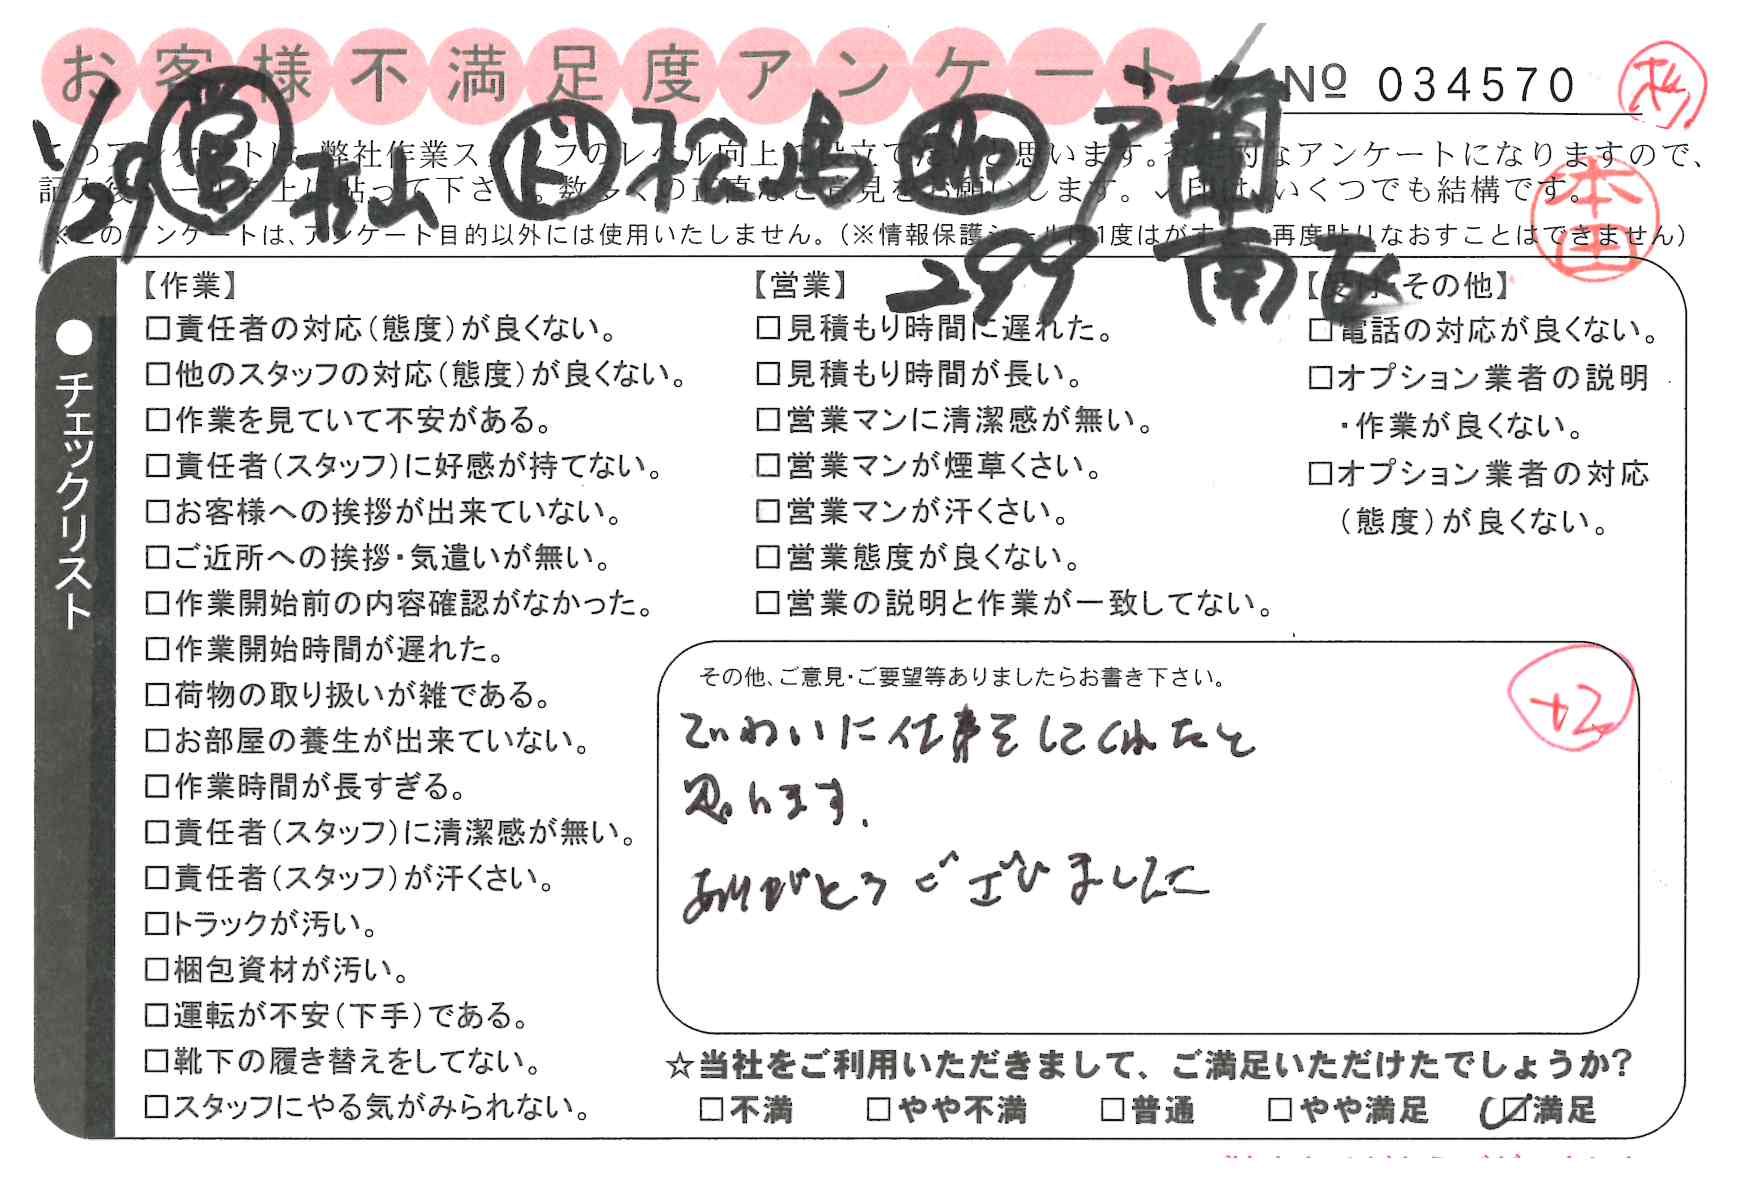 お客様不満足度アンケート
№ 034570
杉
1/29 営 杉山 ド 松島 助 ア 蘭
299 南区
このアンケートは、弊社作業スタッフのレベル向上に役立てたいと思います。社的なアンケートになりますので、
記入後シールを上に貼って下さい。数多くの正直なご意見をお願いします。✓印は、いくつでも結構です。
※このアンケートは、アンケート目的以外には使用いたしません。(※情報保護シールは1度はがすと、再度貼りなおすことはできません)
本田
●チェックリスト
【作業】
□責任者の対応(態度)が良くない。
□他のスタッフの対応(態度)が良くない。
□作業を見ていて不安がある。
□責任者(スタッフ)に好感が持てない。
□お客様への挨拶が出来ていない。
□ご近所への挨拶・気遣いが無い。
□作業開始前の内容確認がなかった。
□作業開始時間が遅れた。
□荷物の取り扱いが雑である。
□お部屋の養生が出来ていない。
□作業時間が長すぎる。
□責任者(スタッフ)に清潔感が無い。
□責任者(スタッフ)が汗くさい。
□トラックが汚い。
□梱包資材が汚い。
□運転が不安(下手)である。
□靴下の履き替えをしてない。
□スタッフにやる気がみられない。
【営業】
□見積もり時間に遅れた。
□見積もり時間が長い。
□営業マンに清潔感が無い。
□営業マンが煙草くさい。
□営業マンが汗くさい。
□営業態度が良くない。
□営業の説明と作業が一致してない。
【受付・その他】
□電話の対応が良くない。
□オプション業者の説明
・作業が良くない。
□オプション業者の対応
(態度)が良くない。
その他、ご意見・ご要望等ありましたらお書き下さい。
+2
ていねいに仕事をしてくれたと
思います.
ありがとうございました
☆当社をご利用いただきまして、ご満足いただけたでしょうか?
□不満 □やや不満 □普通 □やや満足 ☑満足